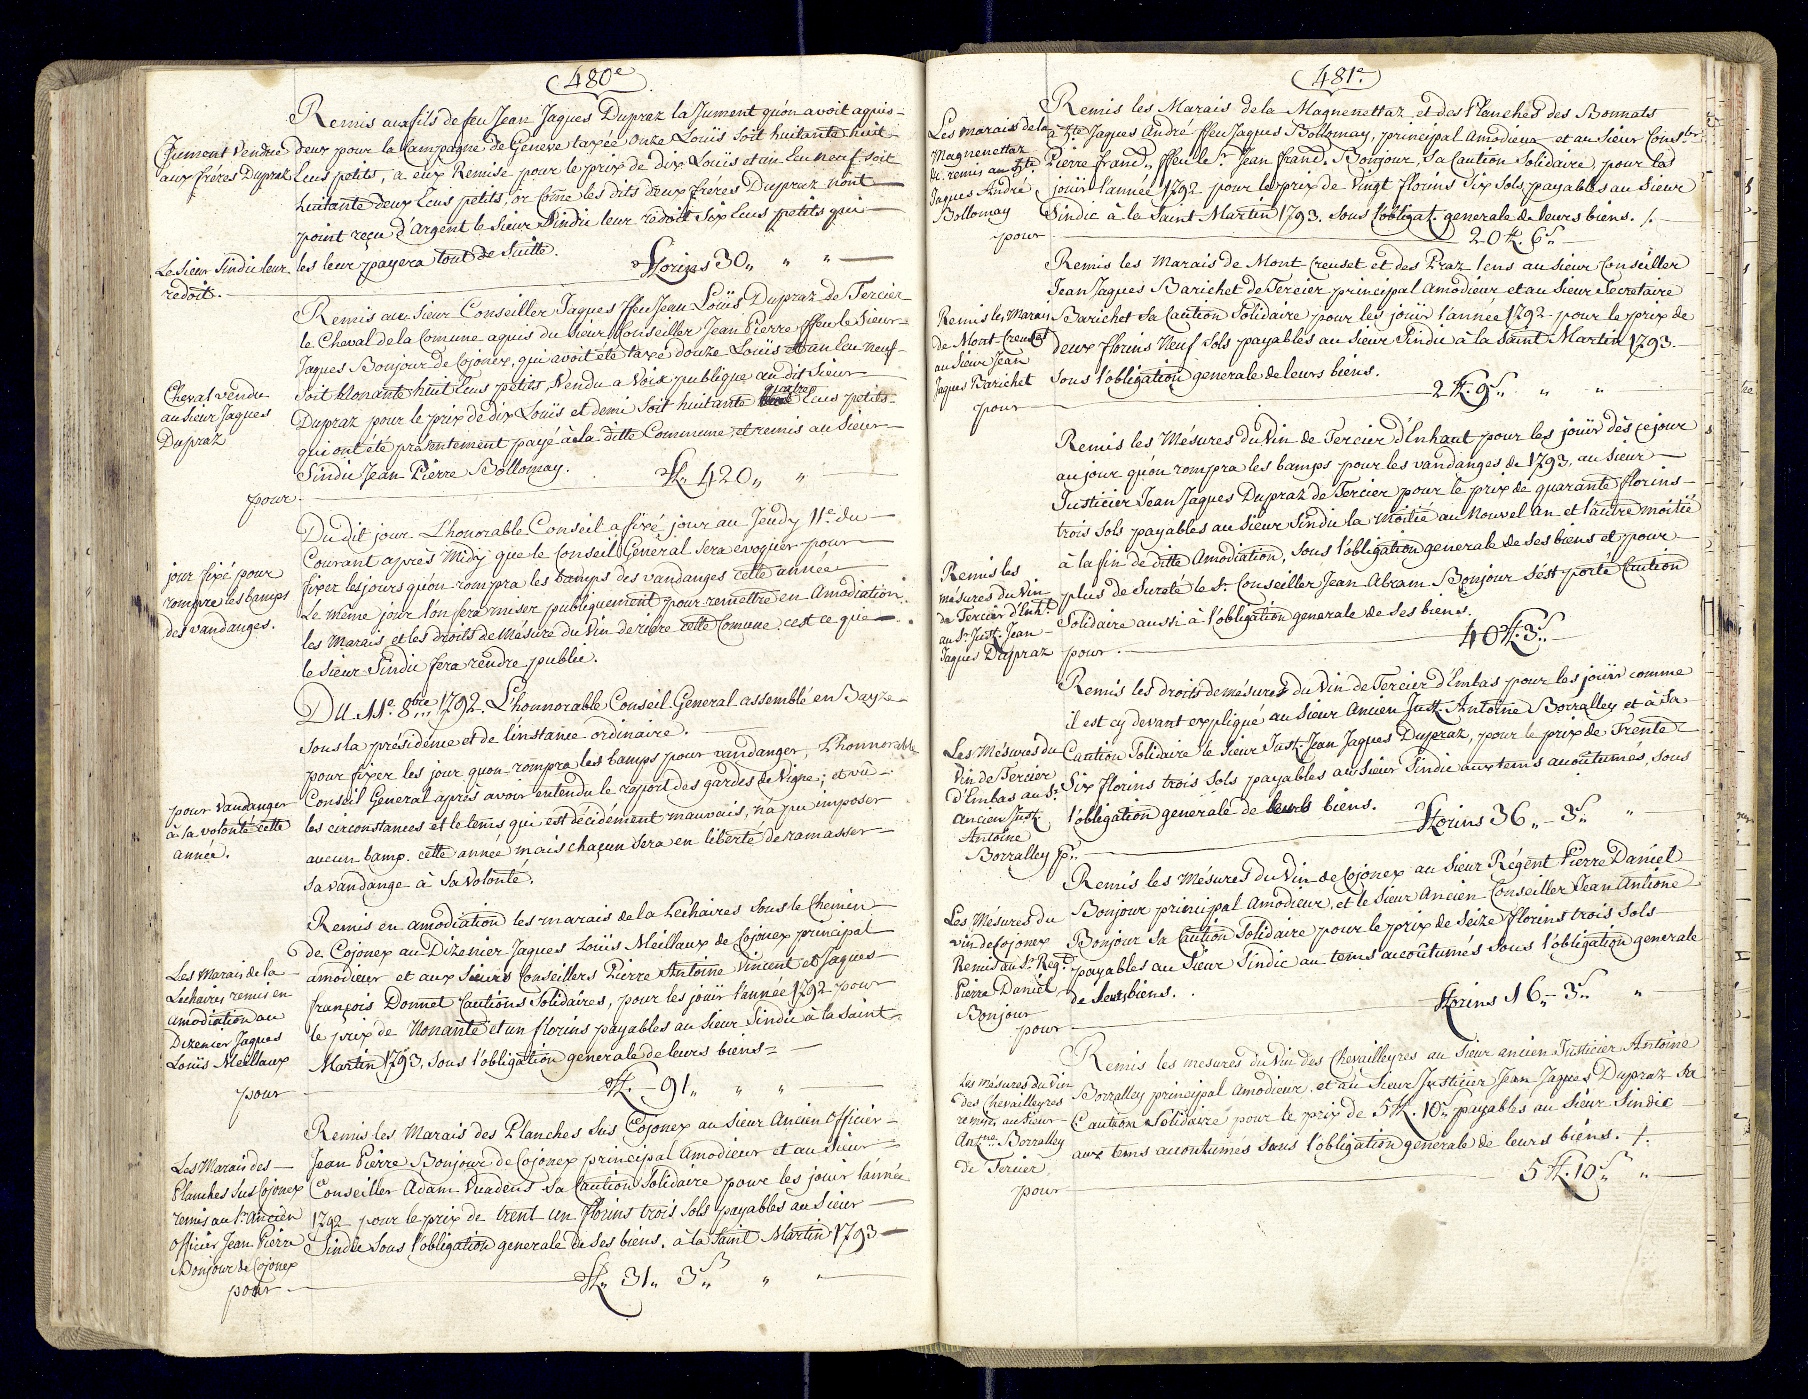 480e
Remis aux fils de feu Jean Jaques Dupraz la Jument qu'on avoit aquis
Jument Vendue
aux fréres Dupraz
deux pour la Campagne de Geneve taxée onze Louïs soit huitante huit
Ecus petits, a eux Remise pour le prix de dix Louis et un Ecu neuf soit
huitante deux Ecus petits, or côme les dits deux fréres Dupraz n'ont
point reçu d'argent le Sieur Sindic leur redoit Six Ecus petits qui
Le Sieur Sindic leur
redoit.
les leur payera tout de Suitte.
Florins 30 „ „ „
Remis au Sieur Conseiller Jaques ffeu Jean Louïs Dupraz de Tercier
le Cheval de la Comune aquis du Sieur Conseiller Jean Pierre ffeu le Sieur
Jaques Bonjour de Cojonex, qui avoit été taxé douze Louïs et un Ecu neuf
Cheval vendu
au Sieur Jaques
Dupraz
soit Nonante huit Ecus petits, Vendu a Voix publique au dit Sieur
Dupraz pour le prix de dix Louïs et demi soit huitante quatre Ecus petits
qui ont été présentement payé à la ditte Commune, et remis au Sieur
Sindic Jean Pierre Bollomay.
Fl. 420 „ „
pour
Du dit jour L'honorable Conseil a fixé jour au Jeudy 11e. du
Courant après Midy que le Conseil General sera evoquer pour
jour fixé pour
rompre les bamps
des vandanges.
fixer les jours qu'on rompra les bamps des vandanges cette année
Le même jour l'on fera miser publiquement pour remettre en Amodiation
les Marais et les droits de Mésure du Vin de riére cette Comune, cest ce que
le Sieur Sindic fera rendre public.
Du 11e. 8bre 1792. L'honnorable Conseil General assemblé en Bayse
sous la présidence et de l'instance ordinaire.
pour fixer les jour quon rompra les bamps pour vandanger, L'honnorable
pour vandanger
à la volonté cette
année.
Conseil General après avoir entendu le raport des gardes de Vigne; et vû
les circonstances et le tems qui est décidément mauvais, n'a pu imposer
aucun bamp. cette année mais chaçun sera en liberté de ramasser
sa vandange à Sa Volonté.
Remis en amodiation les marais de la Lechaires Sous le Chemin
de Cojonex au Dizenier Jaques Louïs Meillaux de Cojonex principal
Les Marais de la
Lechaires remis en
amodiation au
Dizenier Jaques
Louïs Meillaux
amodieur et aux Sieurs Conseillers Pierre Antoine Vincent et Jaques
françois Donnet Cautions Solidaires, pour les jouïr l'année 1792 pour
le prix de Nonante et un florins payables au Sieur Sindic à la Saint
Martin 1793, sous l'obligation generale de leurs biens
pour
Fl. 91 „ „ „
Remis les Marais des Planches Sus Cojonex au Sieur Ancien Officier
Les Marais des
Planches Sus Cojonex
remis au Sr. Ancien
Officier Jean Pierre
Bonjour de Cojonex
pour
Jean Pierre Bonjour de Cojonex principal Amodieur et au Sieur
Conseiller Adam Vuadens Sa Caution Solidaire pour les jouir l'année
1792 pour le prix de trent un florins trois sols payables au Sieur
Sindic Sous l'obligation generale de Ses biens, à la Saint Martin 1793
Fl. 31 „ 3s „ „
481e.
Remis les Marais de la Magnenettaz et des Planches des Bonnats
Les marais de la
Magnenettaz
Jaques André
Bollomay
pour
Jaques André ffeu Jaques Bollomay, principal Amodieur et au Sieur Consler
Pierre frand. ffeu le Sr. Jean frand. Bonjour, Sa Caution Solidaire, pour les
jouïr l'année 1792 pour le prix de Vingt florins Six Sols, payables au Sieur
Sindic à la Saint Martin 1793. Sous l'obligat. generale de leurs biens.
20 fl. 6s.
Remis les Marais de Mont Creuset et des Praz lens au Sieur Conseiller
Jean Jaques Barichet de Tercier principal Amodieur et au Sieur Secretaire
Remis les Marais
de Mont Creuset
au Sieur Jean
Jaques Barichet
pour
Barichet Sa Caution Solidaire pour les jouïr l'année 1792 pour le prix de
deux florins Neuf Sols payables au Sieur Sindic à la Saint Martin 1793.
Sous l'obligation generale de leurs biens.
2 fl. 9s. „ „
Remis les Mésures du Vin de Tercier d'Enhaut pour les jouïr dès ce jour
au jour qu'on rompra les bamps pour les vandanges de 1793, au Sieur
Justicier Jean Jaques Dupraz de Tercier pour le prix de quarante florins
trois sols payables au Sieur Sindic la Moitié au Nouvel An et l'autre moitié
Remis les
mésures du Vin
de Tercier d'Enht
au Sr. Just. Jean
Jaques Dupraz
à la fin de ditte Amodiation, Sous l'obligation generale de Ses biens et pour
plus de Sureté le Sr. Conseiller Jean Abram Bonjour S'est porté Caution
Solidaire aussi à l'obligation generale de Ses biens.
pour
40 fl. 3s.
Remis les droits de mésures du Vin de Tercier d'Embas pour les jouïr comme
il est cy devant expliqué au Sieur Ancien Just. Antoine Borralley et à Sa
Les Mésures du
Vin de Tercier
d'Embas au Sr.
Ancien Just.
Antoine
Borralley pr.
Caution Solidaire le Sieur Just. Jean Jaques Dupraz, pour le prix de Trente
Six florins trois Sols payables au Sieur Sindic aux tems acoûtumés, sous
l'obligation generale de leurs biens.
Florins 36 „ 3s. „
Remis les Mésures du Vin de Cojonex au Sieur Régent Pierre Daniel
Les Mésures du
vin de Cojonex
Remis au Sr. Regt
Pierre Daniel
Bonjour
pour
Bonjour principal Amodieur, et le Sieur Ancien Conseiller Jean Antione
Bonjour Sa Caution Solidaire pour le prix de Seize florins trois Sols
payables au Sieur Sindic au tems acoûtumés Sous l'obligation generale
de leurs biens.
Florins 16 „ 3s. „
Remis les mesures du Vin des Chevailleyres au Sieur ancien Justicier Antoine
Les mésures du Vin
des Chevailleyres
remises au Sieur
Antne. Borralley
de Tercier
pour
Borralley principal Amodieur, et au Sieur Justicier Jean Jaques Dupraz Sa
Caution Solidaire pour le prix de 5 fl. 10s. payables au Sieur Sindic
aux tems acoutumés sous l'obligation generale de leurs biens.
5 fl. 10s. „